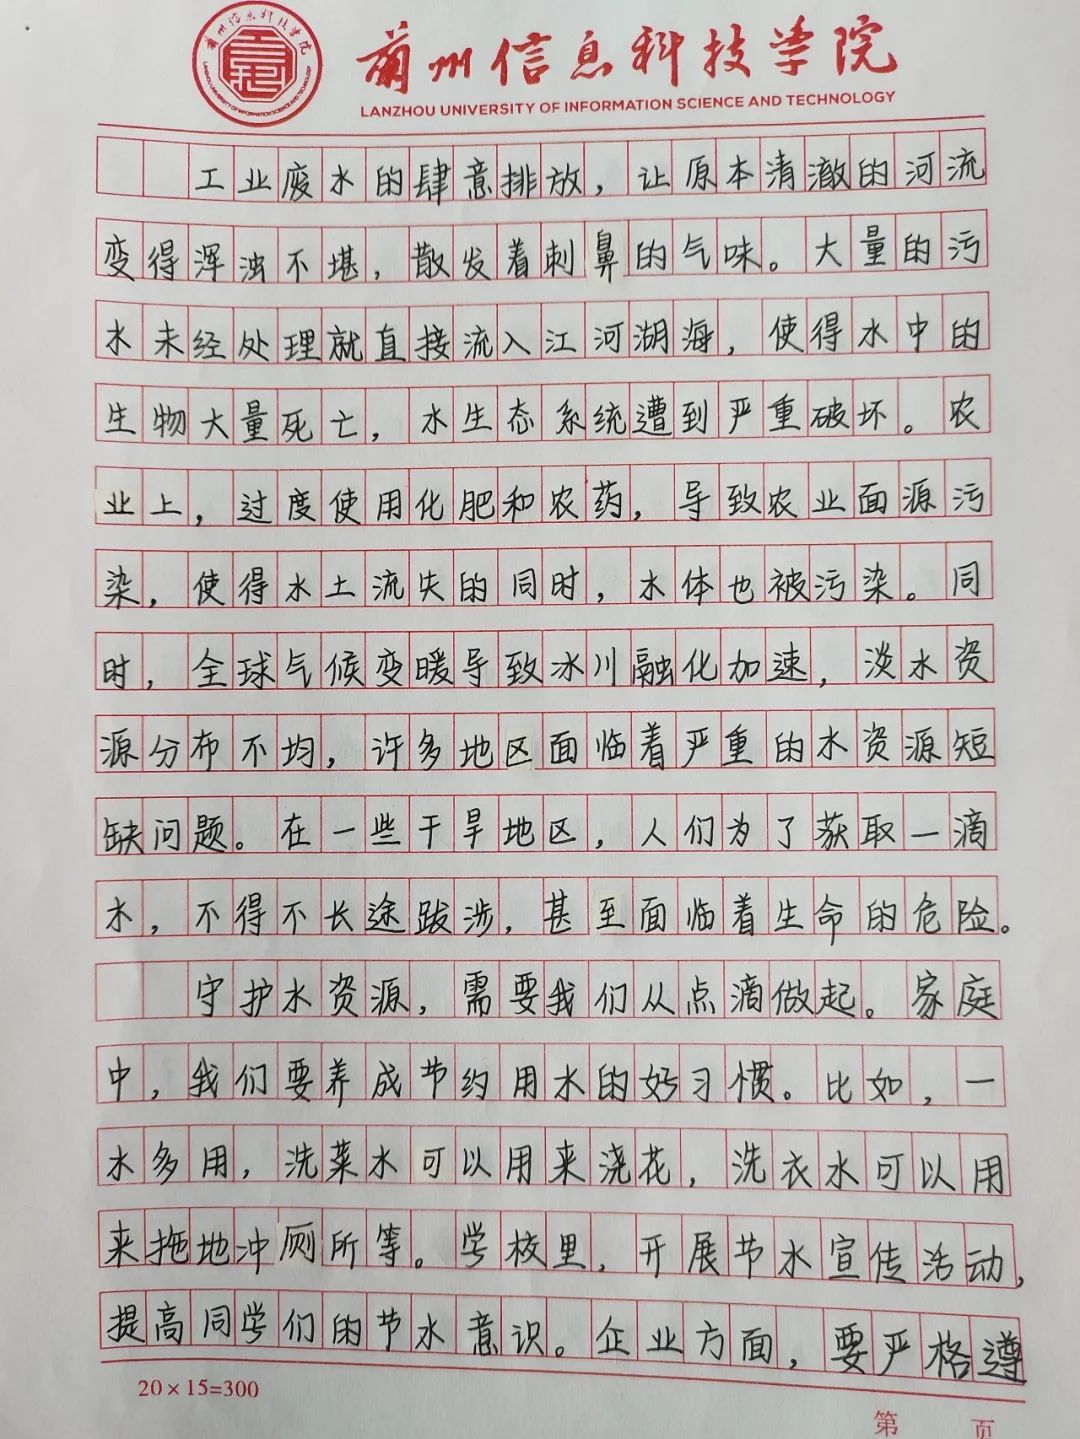 蘭州信息科技学院
LANZHOU UNIVERSITY OF INFORMATION SCIENCE AND TECHNOLOGY
蘭州信息科技学院
LANZHOU UNIVERSITY OF INFORMATION SCIENCE AND TECHNOLOGY
工业废水的肆意排放，让原本清澈的河流
变得浑浊不堪，散发着刺鼻的气味。大量的污
水未经处理就直接流入江河湖海，使得水中的
生物大量死亡，水生态系统遭到严重破坏。农
业上，过度使用化肥和农药，导致农业面源污
染，使得水土流失的同时，水体也被污染。同
时，全球气候变暖导致冰川融化加速，淡水资
源分布不均，许多地区面临着严重的水资源短
缺问题。在一些干旱地区，人们为了获取一滴
水，不得不长途跋涉，甚至面临着生命的危险。
守护水资源，需要我们从点滴做起。家庭
中，我们要养成节约用水的好习惯。比如，一
水多用，洗菜水可以用来浇花，洗衣水可以用
来拖地冲厕所等。学校里，开展节水宣传活动，
提高同学们的节水意识。企业方面，要严格遵
20×15=300
第 页